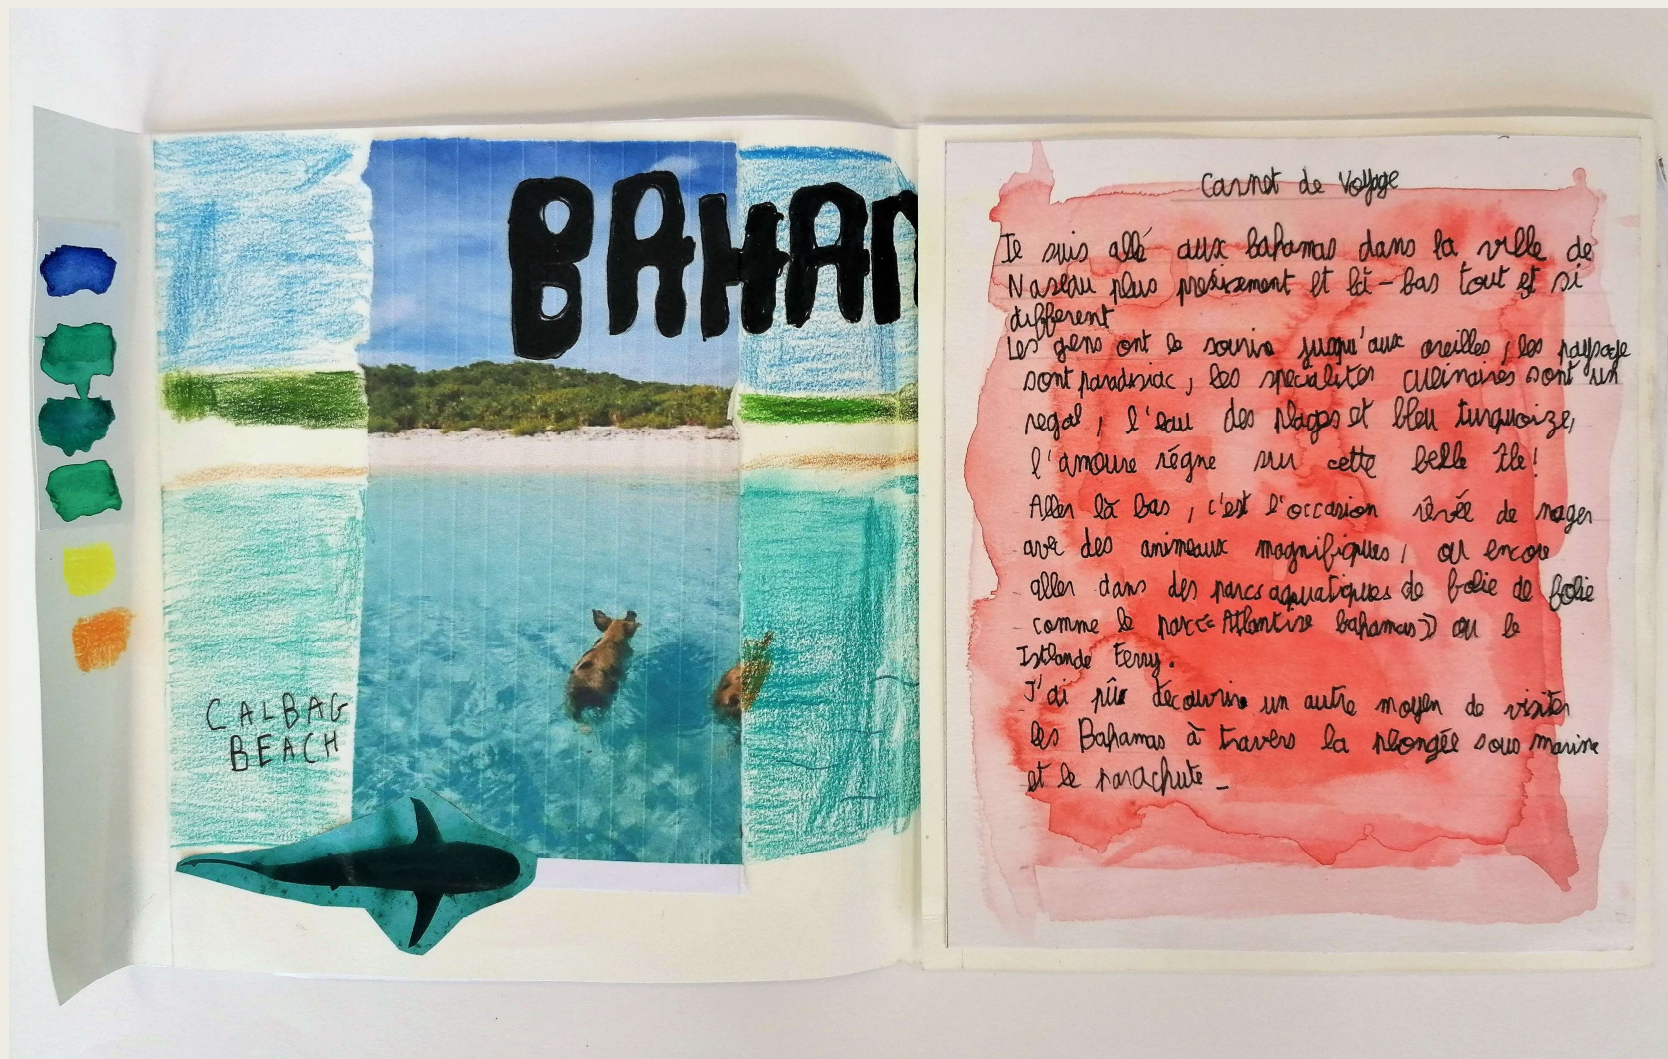 BAHAM
CALBAG
BEACH
Carnet de Voyage
Je suis allé aux bahamas dans la ville de
Nassau plus présisement et là-bas tout est si
different
Les gens ont le sourire jusqu'aux oreilles, les paysage
sont paradisiac, les specialiter culinaires sont un
regal, l'eau des plages et bleu turquoize,
l'amoure régne sur cette belle île!
Aller là bas, c'est l'occasion rêvée de nager
avec des animeaux magnifiques, ou encore
aller dans des parcs aquatiques de folie de folie
comme le parc «Atlantise bahamas» ou le
Istlande Ferry.
J'ai pûe découvrire un autre moyen de visiter
les Bahamas à travers la plongée sous marine
et le parachute_